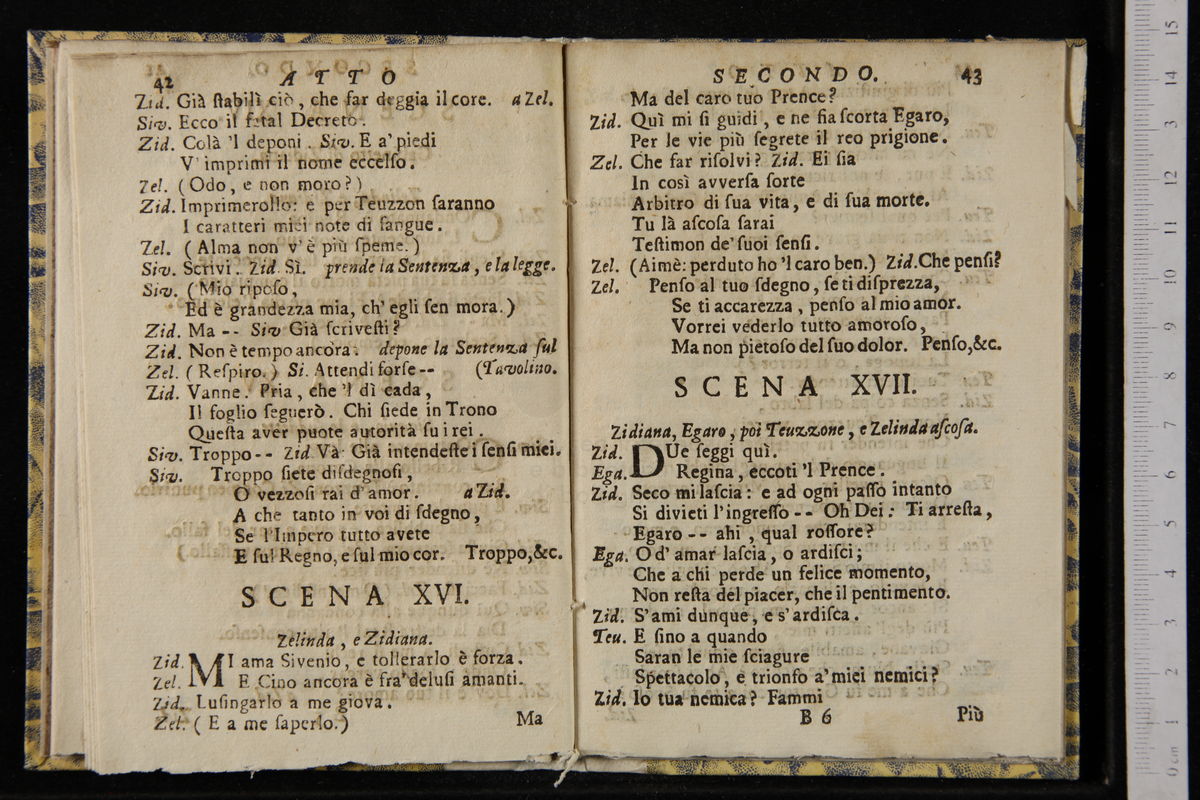 42 ATTO
Zid. Già ſtabilì ciò, che far deggia il core. a Zel.
Siv. Ecco il fatal Decreto.
Zid. Colà 'l deponi. Siv. E a' piedi
V' imprimi il nome eccelſo.
Zel. (Odo, e non moro?)
Zid. Imprimerollo: e per Teuzzon ſaranno
I caratteri miei note di ſangue.
Zel. (Alma non v'è più ſpeme.)
Siv. Scrivi. Zid. Sì. prende la Sentenza, e la legge.
Siv. (Mio ripoſo,
Ed è grandezza mia, ch' egli ſen mora.)
Zid. Ma -- Siv Già ſcriveſti?
Zid. Non è tempo ancora. depone la Sentenza ſul
Zel. (Reſpiro.) Si. Attendi forſe -- (Tavolino.
Zid. Vanne. Pria, che 'l dì cada,
Il foglio ſegnerò. Chi ſiede in Trono
Queſta aver puote autorità ſu i rei.
Siv. Troppo -- Zid. Và. Già intendeſte i ſenſi miei.
Siv. Troppo ſiete diſdegnoſi,
O vezzoſi rai d'amor. a Zid.
A che tanto in voi di ſdegno,
Se l'Impero tutto avete
E ſul Regno, e ſul mio cor. Troppo, &c.
SCENA XVI.
Zelinda, e Zidiana.
Zid. MI ama Sivenio, e tollerarlo è forza.
Zel. E Cino ancora è fra' deluſi amanti.
Zid. Luſingarlo a me giova.
Zel. (E a me ſaperlo.) Ma
SECONDO. 43
Ma del caro tuo Prence?
Zid. Quì mi ſi guidi, e ne ſia ſcorta Egaro,
Per le vie più ſegrete il reo prigione.
Zel. Che far riſolvi? Zid. Ei ſia
In così avverſa ſorte
Arbitro di ſua vita, e di ſua morte.
Tu là aſcoſa ſarai
Teſtimon de' ſuoi ſenſi.
Zel. (Aimè: perduto ho 'l caro ben.) Zid. Che penſi?
Zel. Penſo al tuo ſdegno, ſe ti diſprezza,
Se ti accarezza, penſo al mio amor.
Vorrei vederlo tutto amoroſo,
Ma non pietoſo del ſuo dolor. Penſo, &c.
SCENA XVII.
Zidiana, Egaro, poi Teuzzone, e Zelinda aſcoſa.
Zid. DUe ſeggi quì.
Ega. Regina, eccoti 'l Prence.
Zid. Seco mi laſcia: e ad ogni paſſo intanto
Si divieti l'ingreſſo -- Oh Dei: Ti arreſta,
Egaro -- ahi, qual roſſore?
Ega. O d'amar laſcia, o ardiſci;
Che a chi perde un felice momento,
Non reſta del piacer, che il pentimento.
Zid. S'ami dunque, e s'ardiſca.
Teu. E ſino a quando
Saran le mie ſciagure
Spettacolo, e trionfo a' miei nemici?
Zid. Io tua nemica? Fammi
B 6 Più